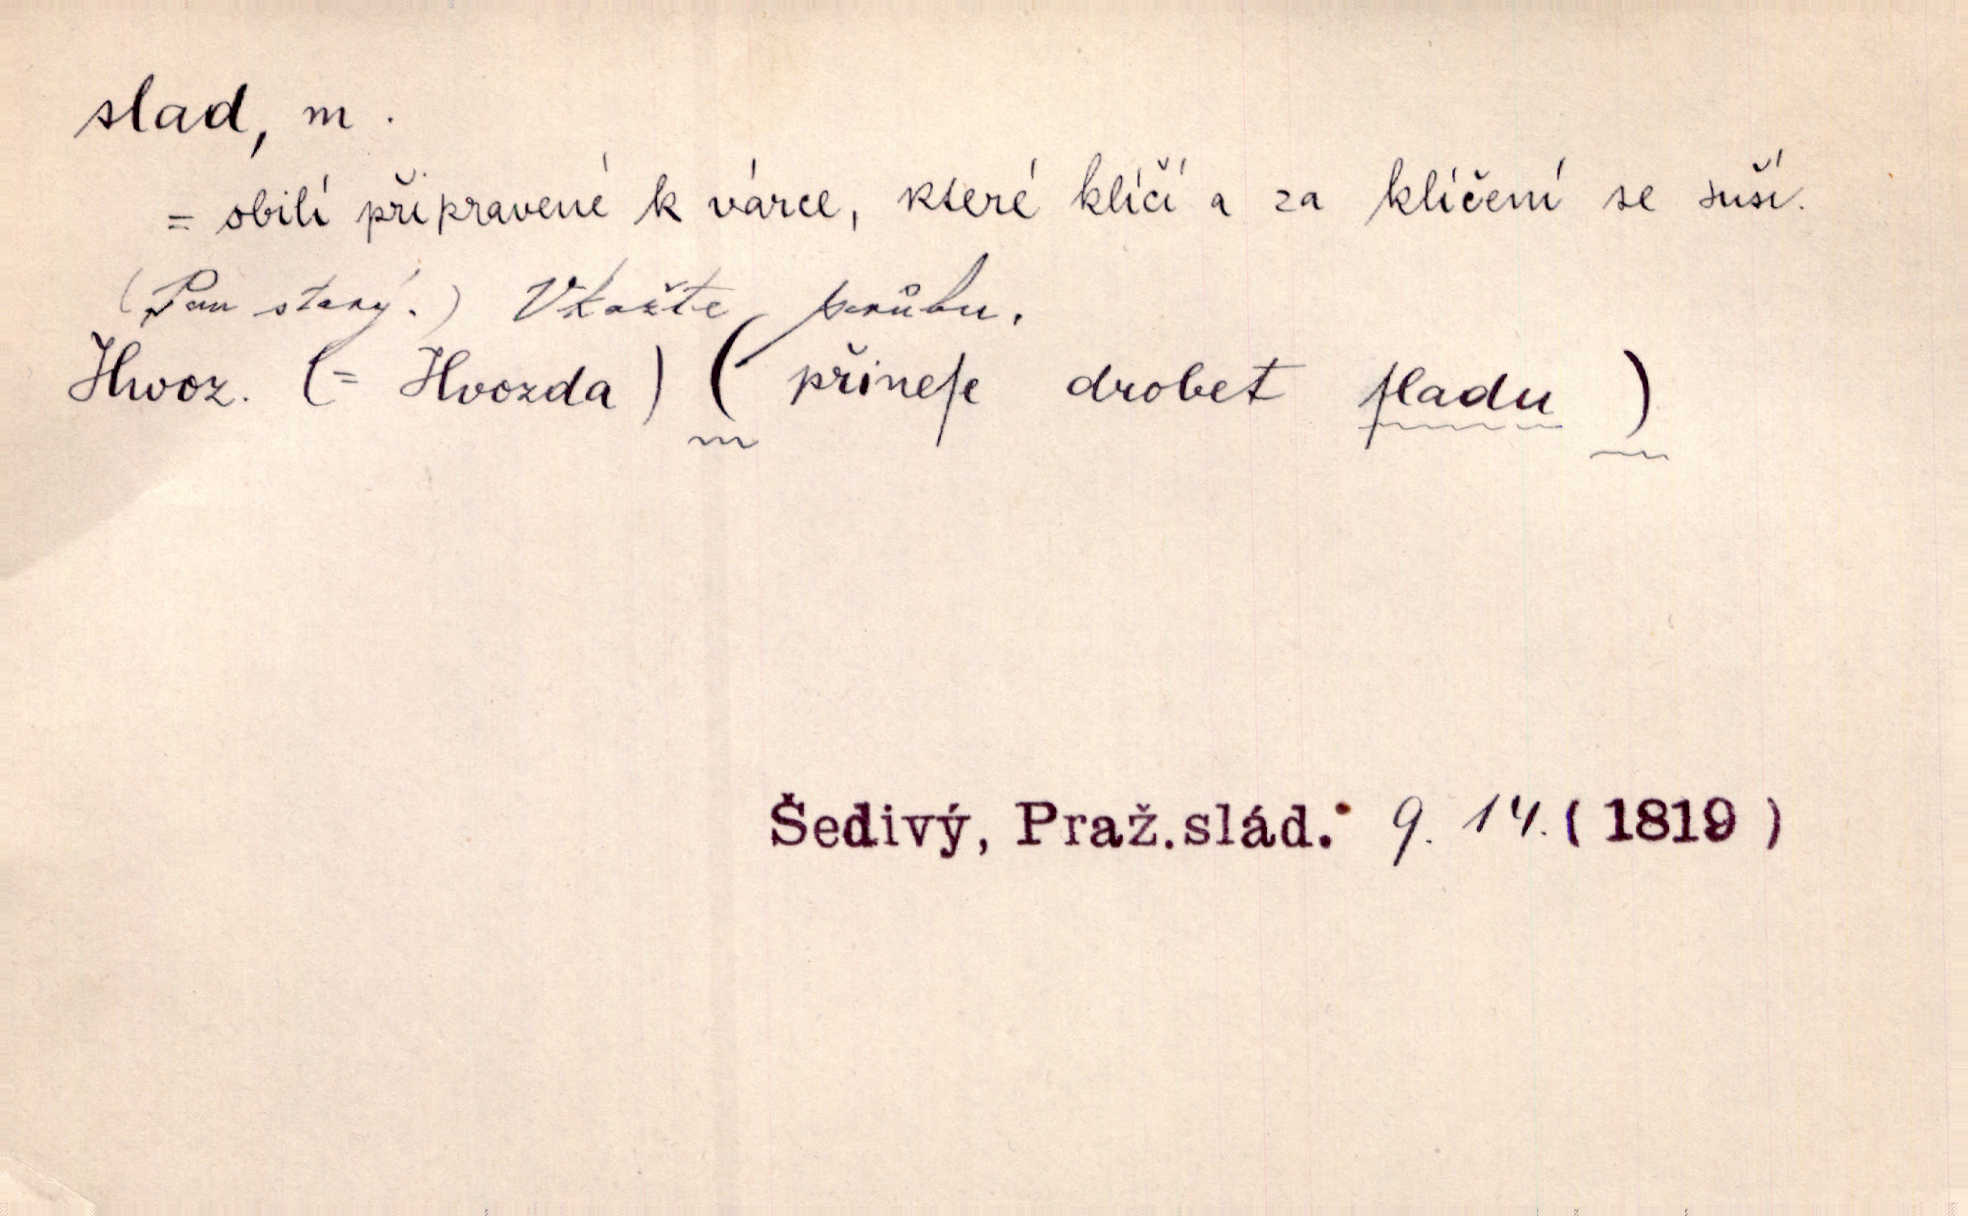 slad, m.
= obilí připravené k várce, které klíčí a za klíčení se suší.
(Pan starý.) Vkažte průbu.
Hwoz. (= Hvozda) (přineſe drobet ſladu)
Šedivý, Praž.slád. 9. 14. (1819)